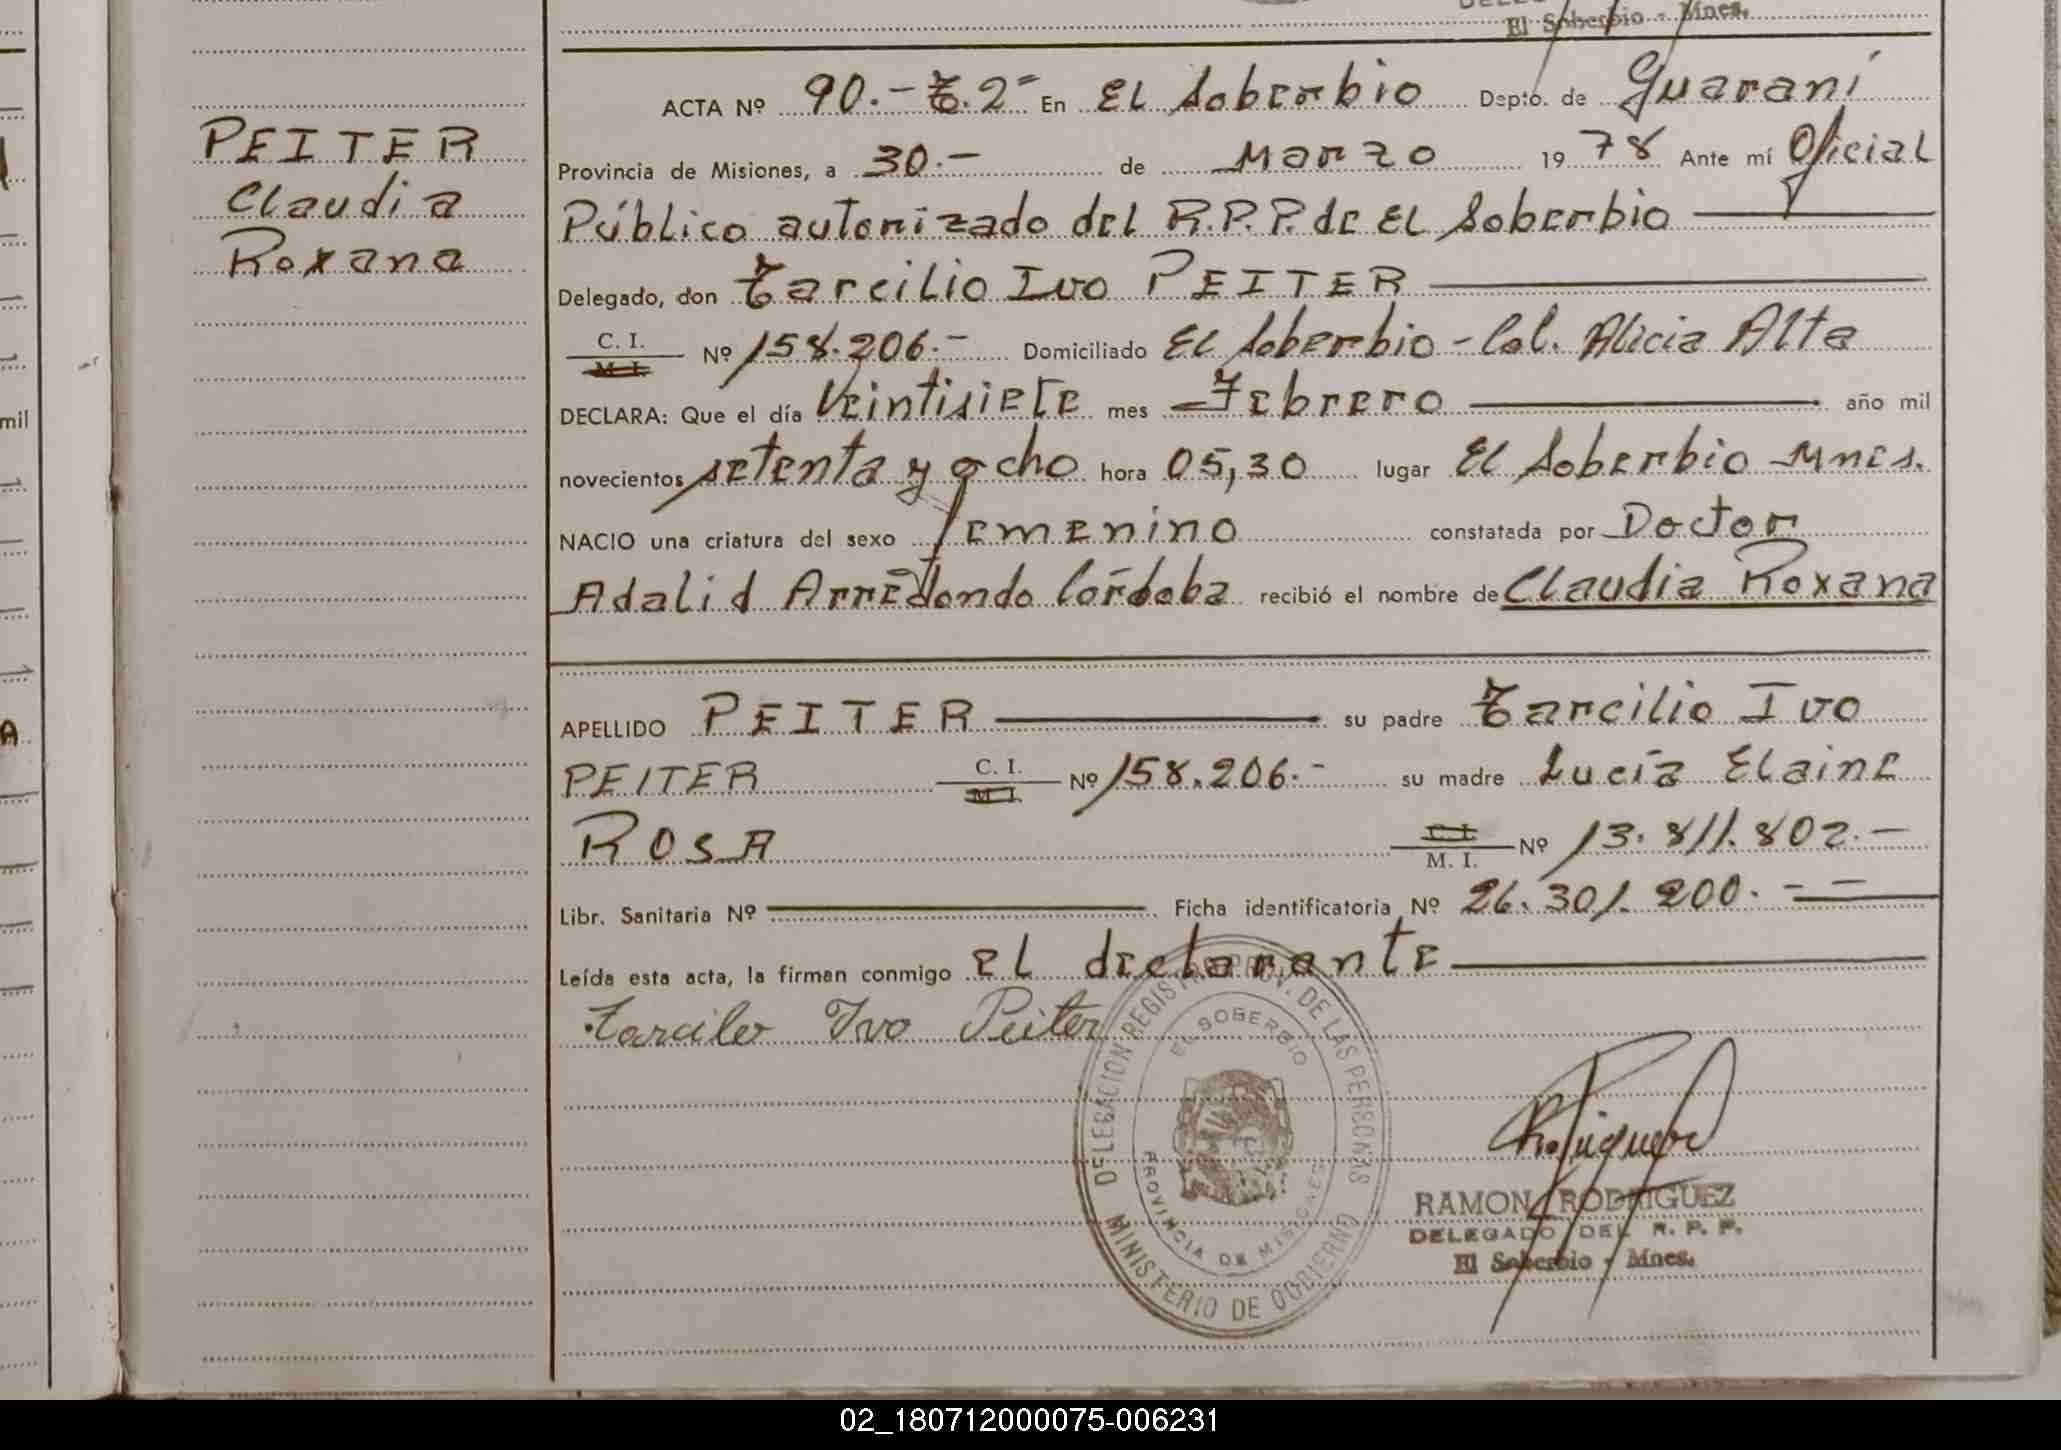 El Soberbio - Mnes.
ACTA Nº 90.- T.2º En El Soberbio Dpto. de Guaraní
PEITER
Claudia
Roxana
Provincia de Misiones, a 30.- de Marzo 1978 Ante mí Oficial
Público autorizado del R.P.P. de El Soberbio
Delegado, don Tarcilio Ivo PEITER
C. I.
M. I.
Nº 158.206.- Domiciliado El Soberbio - Col. Alicia Alta
DECLARA: Que el día Veintisiete mes Febrero año mil
novecientos setenta y ocho hora 05,30 lugar El Soberbio Mnes.
NACIO una criatura del sexo femenino constatada por Doctor
Adalid Arredondo Córdoba recibió el nombre de Claudia Roxana
APELLIDO PEITER su padre Tarcilio Ivo
PEITER C. I. M. I. Nº 158.206.- su madre Lucía Elaine
ROSA C. I. M. I. Nº 13.811.802.-
Libr. Sanitaria Nº Ficha identificatoria Nº 26.301.200.-
Leída esta acta, la firman conmigo el declarante
Tarcilo Ivo Peiter
DELEGACION REGISTRO PROV. DE LAS PERSONAS
EL SOBERBIO
PROVINCIA DE MISIONES
MINISTERIO DE GOBIERNO
RAMON RODRIGUEZ
DELEGADO DEL R. P. P.
El Soberbio - Mnes.
mil
A
02_180712000075-006231